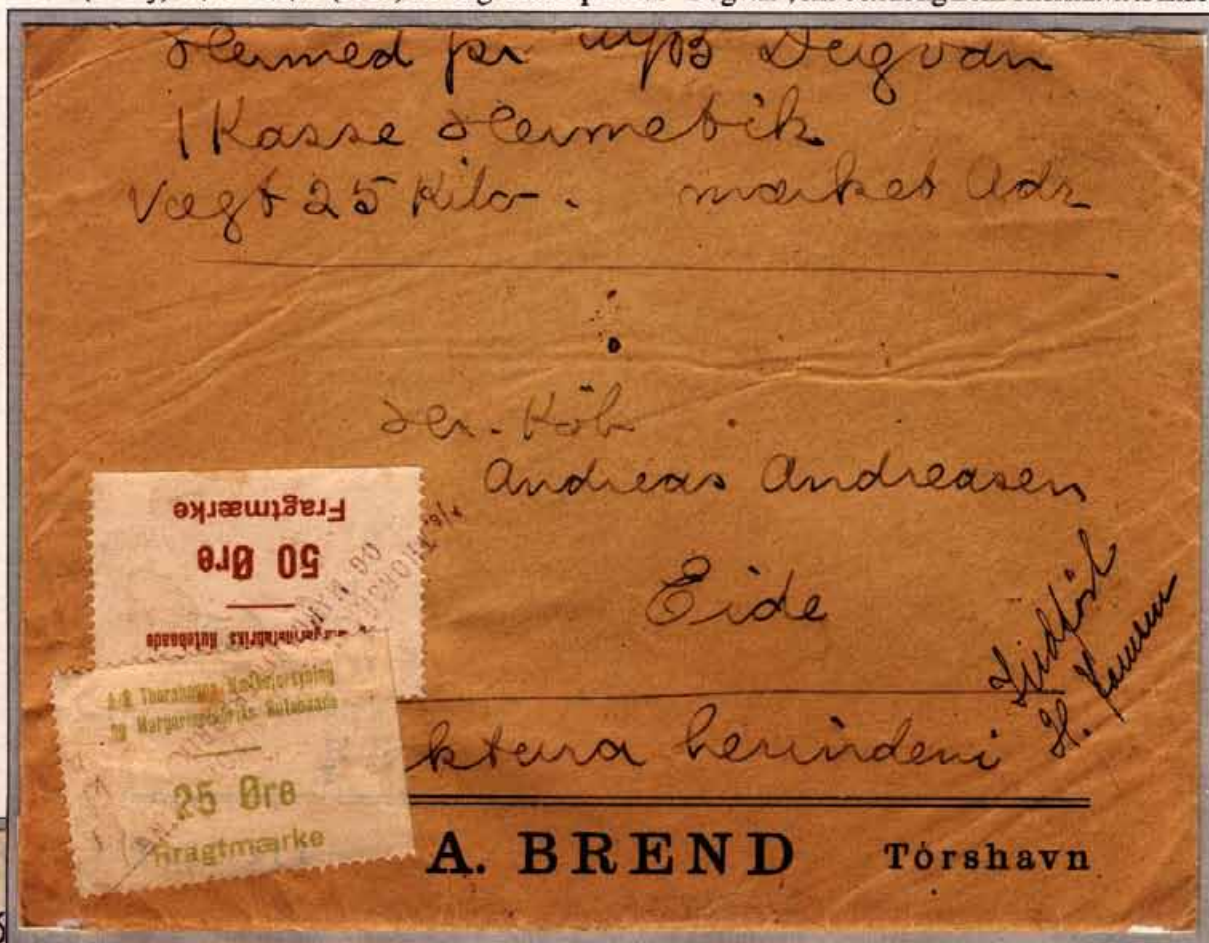 Hermed pr M/B Dugvan
1 Kasse Hermetik
Vægt 25 Kilo. mærket Adr
Hr. Köb
Andreas Andreasen
Eide
H. Hansen
ktura herindeni
Fragtmærke
50 Øre
Margarinefabriks Rutebaade
A/S Thorshavns Mælkeforsyning
og Margarinefabriks Rutebaade
25 Øre
Fragtmærke
A. BREND Tórshavn